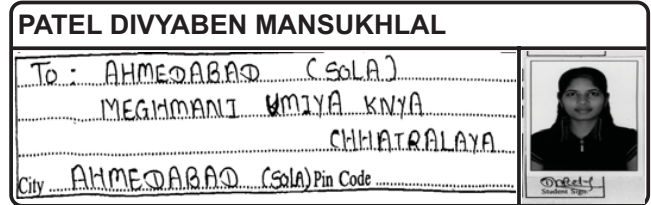 PATEL DIVYABEN MANSUKHLAL
To : AHMEDABAD (SOLA)
MEGHMANI UMIYA KNYA
CHHATRALAYA
City AHMEDABAD (SOLA) Pin Code
Student Sign